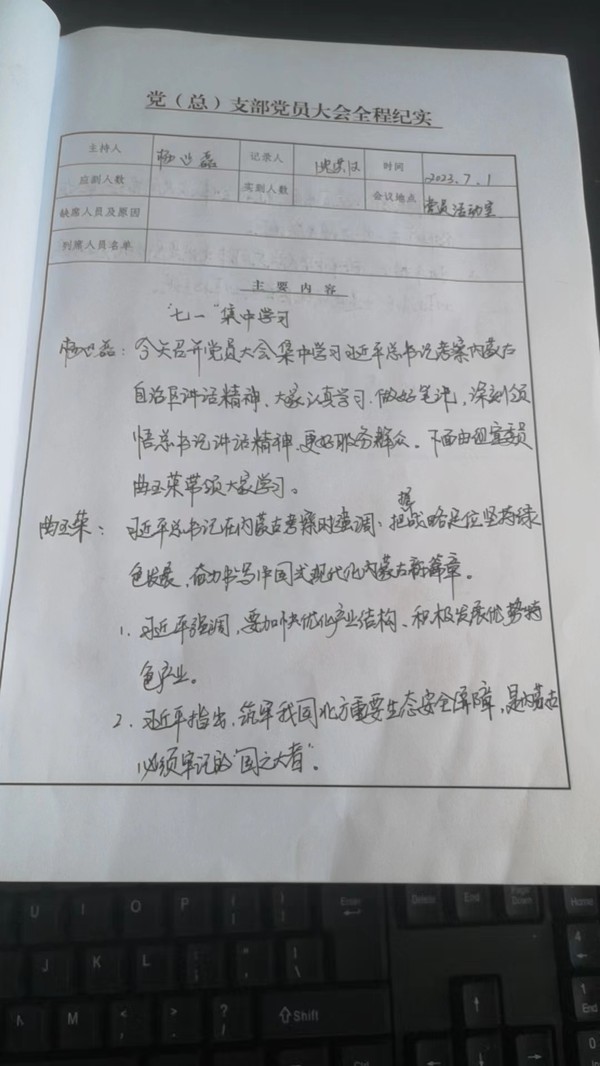 党（总）支部党员大会全程纪实
主持人 杨世磊 记录人 时间 2023.7.1
应到人数 实到人数 会议地点 党员活动室
缺席人员及原因
列席人员名单
主要内容
"七一"集中学习
杨世磊：今天召开党员大会集中学习习近平总书记考察内蒙古
自治区讲话精神、大家认真学习.做好笔记，深刻领
悟总书记讲话精神.更好服务群众。下面由组宣委员
曲玉荣带领大家学习。
曲玉荣：习近平总书记在内蒙古考察时强调：把握战略定位坚持绿
色发展、奋力书写中国式现代化内蒙古新篇章。
1. 习近平强调，要加快优化产业结构、积极发展优势特
色产业。
2. 习近平指出，筑牢我国北方重要生态安全屏障，是内蒙古
必须牢记的"国之大者"。
U I O P Enter Delete End Page Down Home
J K L
N M Shift 1 End
Ctrl 0